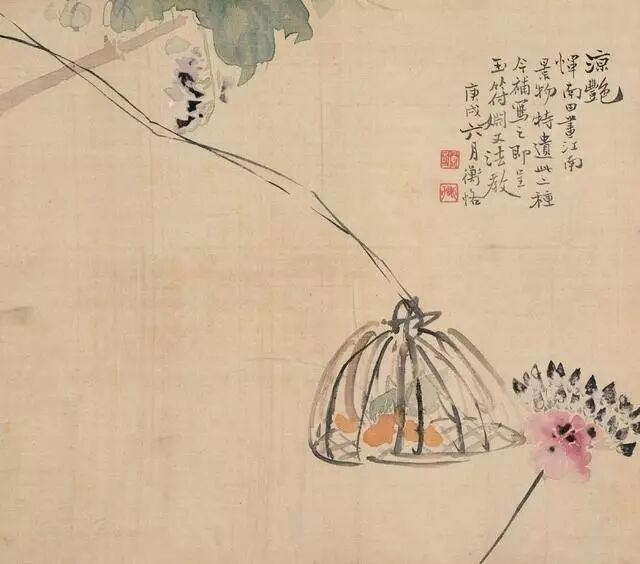 凉艷
惲南田畫江南
景物特遺此二種
今補寫之即呈
玉符姻丈法教
庚戌六月衡恪